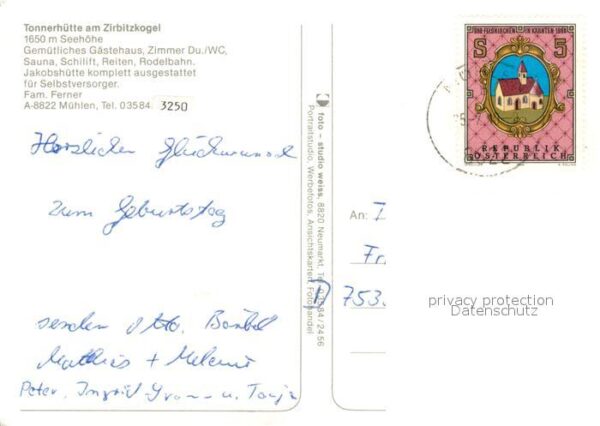 Tonnerhütte am Zirbitzkogel
1650 m Seehöhe
Gemütliches Gästehaus, Zimmer Du./WC,
Sauna, Schilift, Reiten, Rodelbahn.
Jakobshütte komplett ausgestattet
für Selbstversorger.
Fam. Ferner
A-8822 Mühlen, Tel. 03584 3250
Herzlichen Glückwunsch
zum Geburtstag
senden Otto, Bärbel
Mathias + Melanie
Peter, Ingrid Yvonne u. Tanja
foto - studio weiss, 8820 Neumarkt, Tel. 03584/2456
Portraitstudio, Werbefotos, Ansichtskarten, Fotohandel
1100 JAHRE FELDKIRCHEN IN KÄRNTEN 1988
S 5
REPUBLIK
ÖSTERREICH
An:
Fr
D 753
privacy protection
Datenschutz